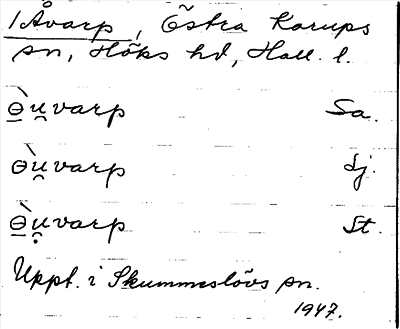 /Åvarp, Östra Karups
sn, Höks hd, Hall. l.
ɵ̲̀u̯varp Sa.
ɵ̀u̯varp Lj.
ɵ̲̀ụ̯varp St.
Uppt. i Skummeslövs sn.
1947.